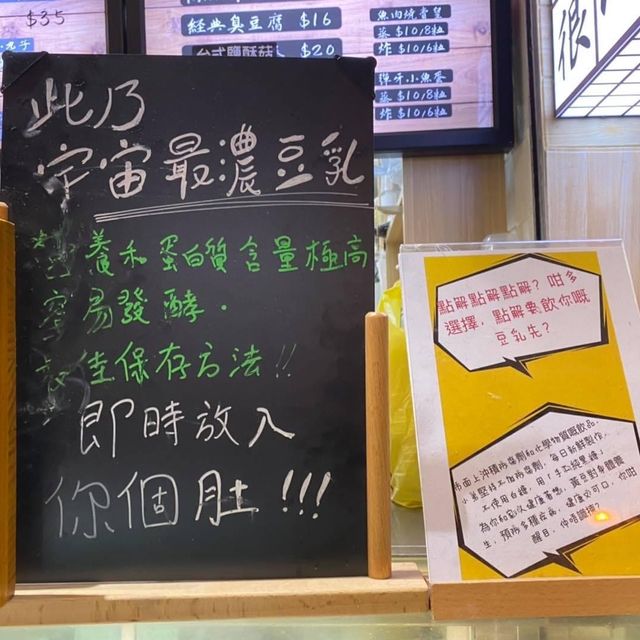 $35
經典臭豆腐 $16
台式鹽酥菇 $20
魚肉燒賣皇
蒸 $10/8粒
炸 $10/6粒
彈牙小魚蛋
蒸 $10/8粒
炸 $10/6粒
很
此乃
宇宙最濃豆乳
營養和蛋白質含量極高
容易發酵.
最佳保存方法!!
即時放入
你個肚!!!
點解點解點解? 咁多
選擇, 點解要飲你嘅
豆乳先?
市面上沖積防腐劑和化學物質嘅飲品,
小美堅持不加防腐劑, 每日新鮮製作,
不使用白糖, 用「手工純黑糖」
為你和家人健康著想, 黃豆對身體養
生, 預防多種疾病, 健康又可口, 你咁
醒目, 仲唔識揀?